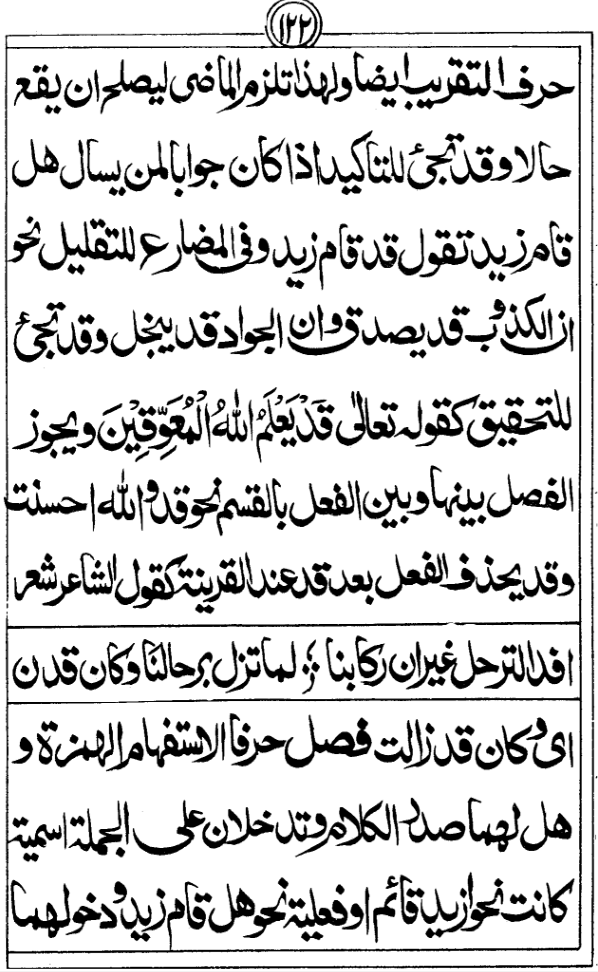 ١٢٢
حرف التقريب ايضا ولهذا تلزم الماضى ليصلح ان يقع
حالا وقد تجئ للتاكيد اذا كان جوابا لمن يسال هل
قام زيد تقول قد قام زيد وفى المضارع للتقليل نحو
ان الكذوب قد يصدق وان الجواد قد يبخل وقد تجئ
للتحقيق كقوله تعالى قَدْ يَعْلَمُ اللهُ الْمُعَوِّقِيْنَ ويجوز
الفصل بينها وبين الفعل بالقسم نحو قد والله احسنت
وقد يحذف الفعل بعد قد عند القرينة كقول الشاعر شعر
افد الترحل غير ان ركابنا ؛ لما تزل برحالنا وكان قدن
اى وكان قد زالت فصل حرفا الاستفهام الهمزة و
هل لهما صدر الكلام وتدخلان على الجملة اسمية
كانت نحو ازيد قائم او فعلية نحو هل قام زيد ودخولهما